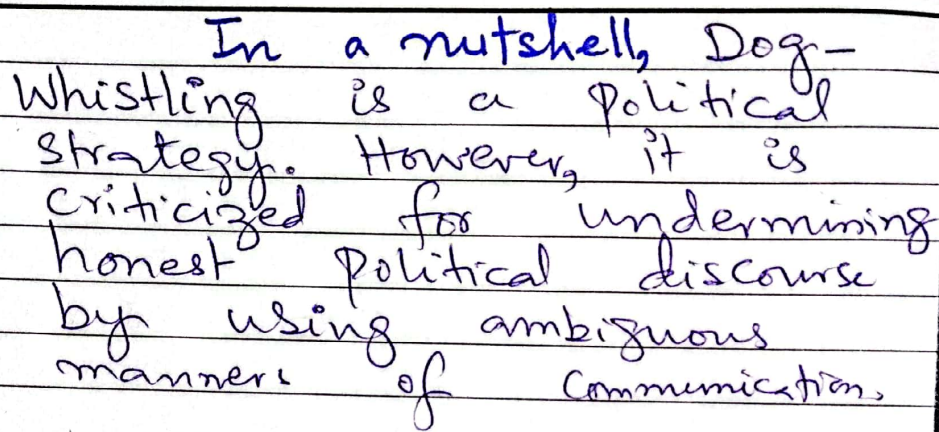 In a nutshell, Dog-
Whistling is a political
Strategy. However, it is
criticized for undermining
honest political discourse
by using ambiguous
manners of Communication.